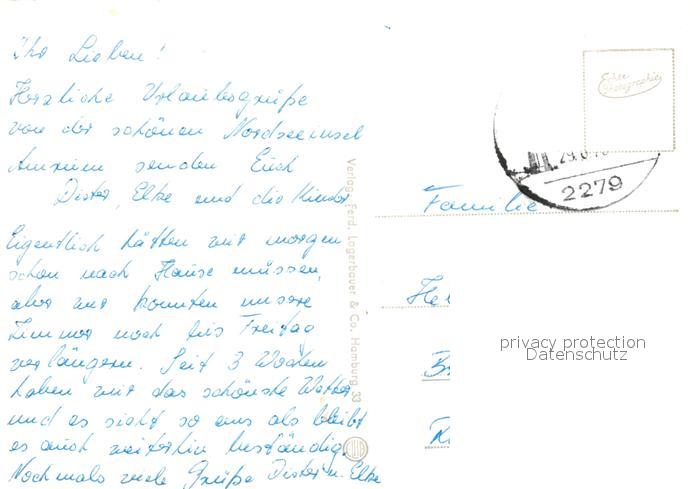 Ihr Lieben!
Herzliche Urlaubsgrüße
von der schönen Nordseeinsel
Amrum senden Euch
Dieter, Elke und die Kinder.
Eigentlich hätten wir morgen
schon nach Hause müssen,
aber wir konnten unsere
Zimmer noch bis Freitag
verlängern. Seit 3 Wochen
haben wir das schönste Wetter
und es sieht so aus als bleibt
es auch weiterhin beständig.
Nochmals viele Grüße Dieter u. Elke
Verlag Ferd. Lagerbauer & Co. Hamburg 33
Echte Photographie
2279
Familie
privacy protection
Datenschutz